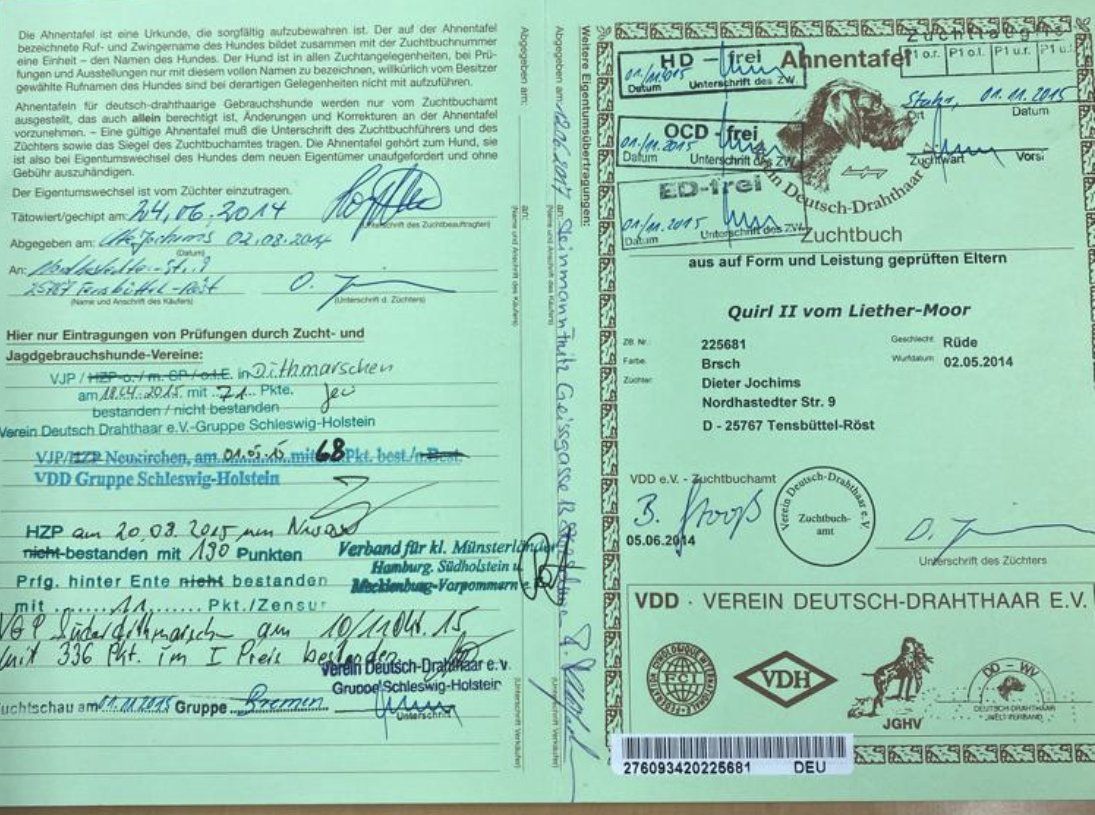 Die Ahnentafel ist eine Urkunde, die sorgfältig aufzubewahren ist. Der auf der Ahnentafel
bezeichnete Ruf- und Zwingername des Hundes bildet zusammen mit der Zuchtbuchnummer
eine Einheit – den Namen des Hundes. Der Hund ist in allen Zuchtangelegenheiten, bei Prü-
fungen und Ausstellungen nur mit diesem vollen Namen zu bezeichnen, willkürlich vom Besitzer
gewählte Rufnamen des Hundes sind bei derartigen Gelegenheiten nicht mit aufzuführen.
Ahnentafeln für deutsch-drahthaarige Gebrauchshunde werden nur vom Zuchtbuchamt
ausgestellt, das auch allein berechtigt ist, Änderungen und Korrekturen an der Ahnentafel
vorzunehmen. – Eine gültige Ahnentafel muß die Unterschrift des Zuchtbuchführers und des
Züchters sowie das Siegel des Zuchtbuchamtes tragen. Die Ahnentafel gehört zum Hund, sie
ist also bei Eigentumswechsel des Hundes dem neuen Eigentümer unaufgefordert und ohne
Gebühr auszuhändigen.
Der Eigentumswechsel ist vom Züchter einzutragen.
Tätowiert/gechipt am: 24.06.2014
(Unterschrift des Zuchtbeauftragten)
Abgegeben am: Jochims 02.08.2014
(Datum)
An: Nordhastedter-Str. 9
25767 Tensbüttel-Röst
(Name und Anschrift des Käufers)
(Unterschrift d. Züchters)
Hier nur Eintragungen von Prüfungen durch Zucht- und
Jagdgebrauchshunde-Vereine:
VJP / HZP o. / m. GP / o.l.E. in Dithmarschen
am 18.04.2015 mit 71 Pkte.
bestanden / nicht bestanden
Verein Deutsch Drahthaar e.V.-Gruppe Schleswig-Holstein
VJP/HZP Neukirchen, am 01.05.15 mit 68 Pkt. best./n.Best.
VDD Gruppe Schleswig-Holstein
HZP am 20.09.2015
nicht bestanden mit 190 Punkten
Verband für kl. Münsterländer
Hamburg, Südholstein u.
Mecklenburg-Vorpommern e.
Prfg. hinter Ente nicht bestanden
mit 11 Pkt./Zensur
VGP Süderdithmarschen am 10/11 Okt. 15
mit 336 Pkt. im I Preis bestanden
Verein Deutsch-Drahthaar e.v.
Gruppe Schleswig-Holstein
Unterschrift
Zuchtschau am 01.11.2015 Gruppe Bremen
Abgegeben am:
an:
(Name und Anschrift des Käufers)
(Unterschrift Verkäufer)
Weitere Eigentumsübertragungen:
Abgegeben am: 12.06.2017 an: Steinmann Geissgasse 12
(Name und Anschrift des Käufers)
(Unterschrift Verkäufer)
HD – frei
01./11.2015
Datum Unterschrift des ZW
OCD - frei
01./11.2015
Datum Unterschrift des ZW
ED-frei
01./11.2015
Datum Unterschrift des ZW
P1 o.r. P1 o.l. P1 u.r. P1 u.l.
01.11.2015
Ort Datum
Zuchtwart Vorsi
Ahnentafel
Verein Deutsch-Drahthaar e.V.
Zuchtbuch
aus auf Form und Leistung geprüften Eltern
Quirl II vom Liether-Moor
ZB. Nr. 225681 Geschlecht: Rüde
Farbe: Brsch Wurfdatum 02.05.2014
Züchter: Dieter Jochims
Nordhastedter Str. 9
D - 25767 Tensbüttel-Röst
VDD e.V. - Zuchtbuchamt
B. Stooß
05.06.2014
Verein Deutsch-Drahthaar e.V.
Zuchtbuch-
amt
Unterschrift des Züchters
VDD · VEREIN DEUTSCH-DRAHTHAAR E.V.
FEDERATION CYNOLOGIQUE INTERNATIONALE
FCI
VDH
JGHV
DD – WV
DEUTSCH-DRAHTHAAR
WELTVERBAND
276093420225681 DEU